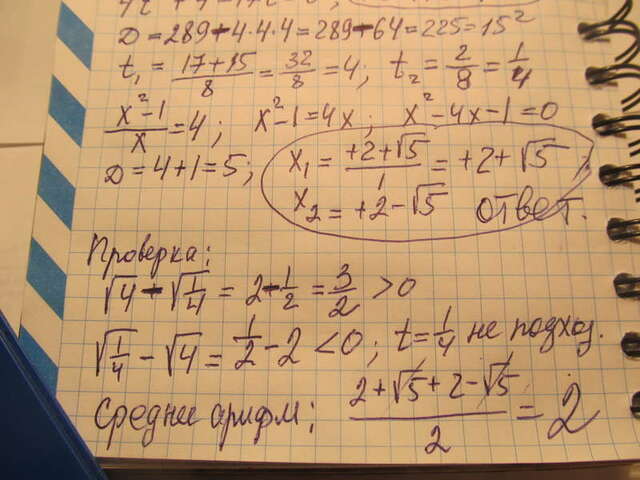 D = 289 - 4·4·4 = 289 - 64 = 225 = 15²
t₁ = (17+15)/8 = 32/8 = 4; t₂ = 2/8 = 1/4
(x²-1)/x = 4; x²-1 = 4x; x²-4x-1 = 0
D = 4+1 = 5; x₁ = (+2+√5)/1 = +2+√5
x₂ = +2-√5 ответ.
Проверка:
√4 - √(1/4) = 2 - 1/2 = 3/2 > 0
√(1/4) - √4 = 1/2 - 2 < 0; t = 1/4 не подход.
Среднее арифм: (2+√5+2-√5)/2 = 2